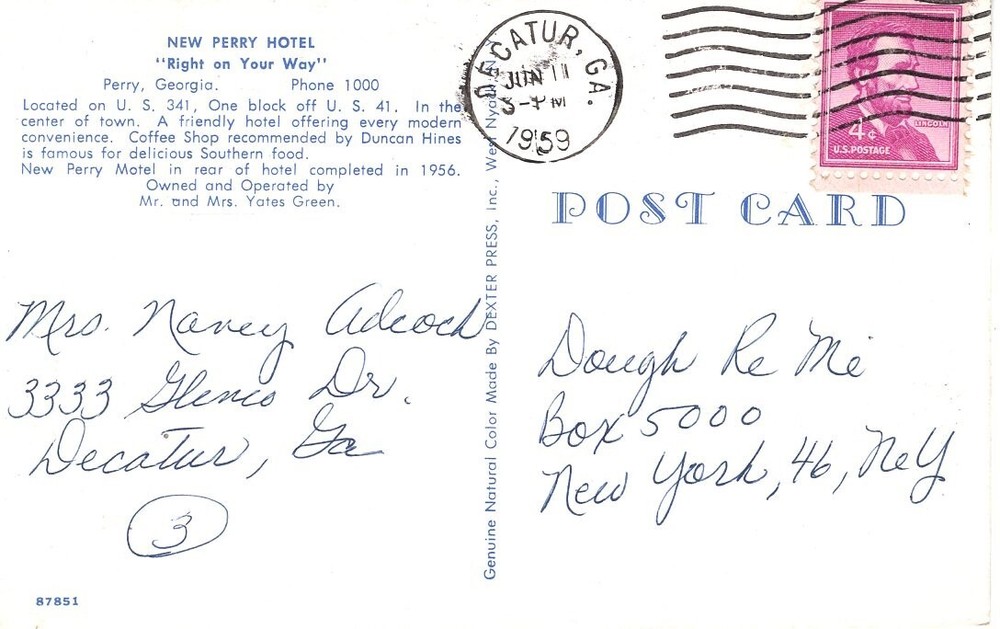 NEW PERRY HOTEL
"Right on Your Way"
Perry, Georgia. Phone 1000
Located on U. S. 341, One block off U. S. 41. In the
center of town. A friendly hotel offering every modern
convenience. Coffee Shop recommended by Duncan Hines
is famous for delicious Southern food.
New Perry Motel in rear of hotel completed in 1956.
Owned and Operated by
Mr. and Mrs. Yates Green.
DECATUR, GA.
JUN 11
3-PM
1959
4¢
LINCOLN
U.S. POSTAGE
POST CARD
Genuine Natural Color Made By DEXTER PRESS, Inc., West Nyack, N
Mrs. Nancy Adcock
3333 Glenco Dr.
Decatur, Ga
3
Dough Re Mi
Box 5000
New York, 46, N.Y
87851